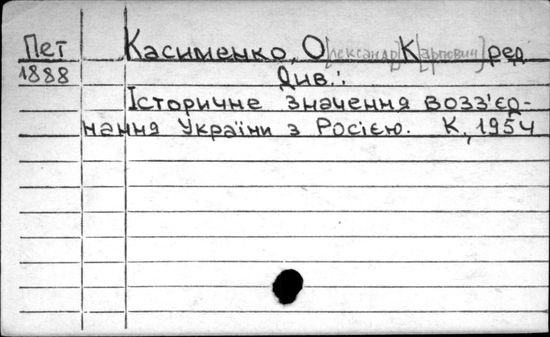 Пет Касименко, О[лександр] К[арпович] ред.
1888 Див.:
Історичне значення возз'єд-
нання України з Росією. К, 1954